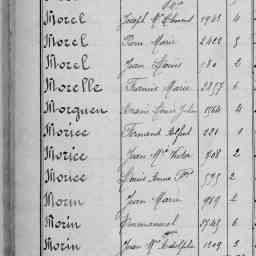 Morel Joseph Mie Clément 1943 4
Morel Pierre Marie 2422 3
Morel Jean Louis 180 2
Morelle Francis Marie 2857 6
Morguen Louis Julien 1764 4
Morice Fernand Alfred 221 1
Morice Jean Mie Victor 908 2
Morice Louis Anne 595 2
Morin Jean Marie 969 2
Morin Emmanuel 2745 6
Morin Jean Mie Adolphe 1209 3